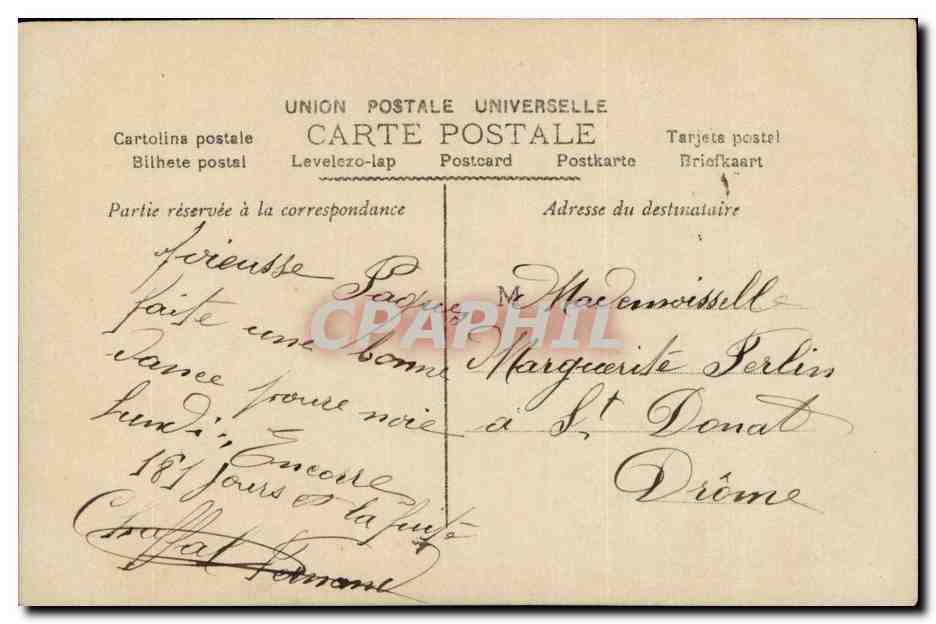 UNION POSTALE UNIVERSELLE
CARTE POSTALE
Cartolina postale
Tarjeta postal
Bilhete postal Levelezo-lap Postcard Postkarte Briefkaart
Partie réservée à la correspondance
Adresse du destinataire
Paques
faite une bonne
dance poure
lundi, Encorre
181 Jours et la fuite
Chaffal
M Mademoisselle
Marguerite Perlin
à St Donat
Drôme
CPAPHIL